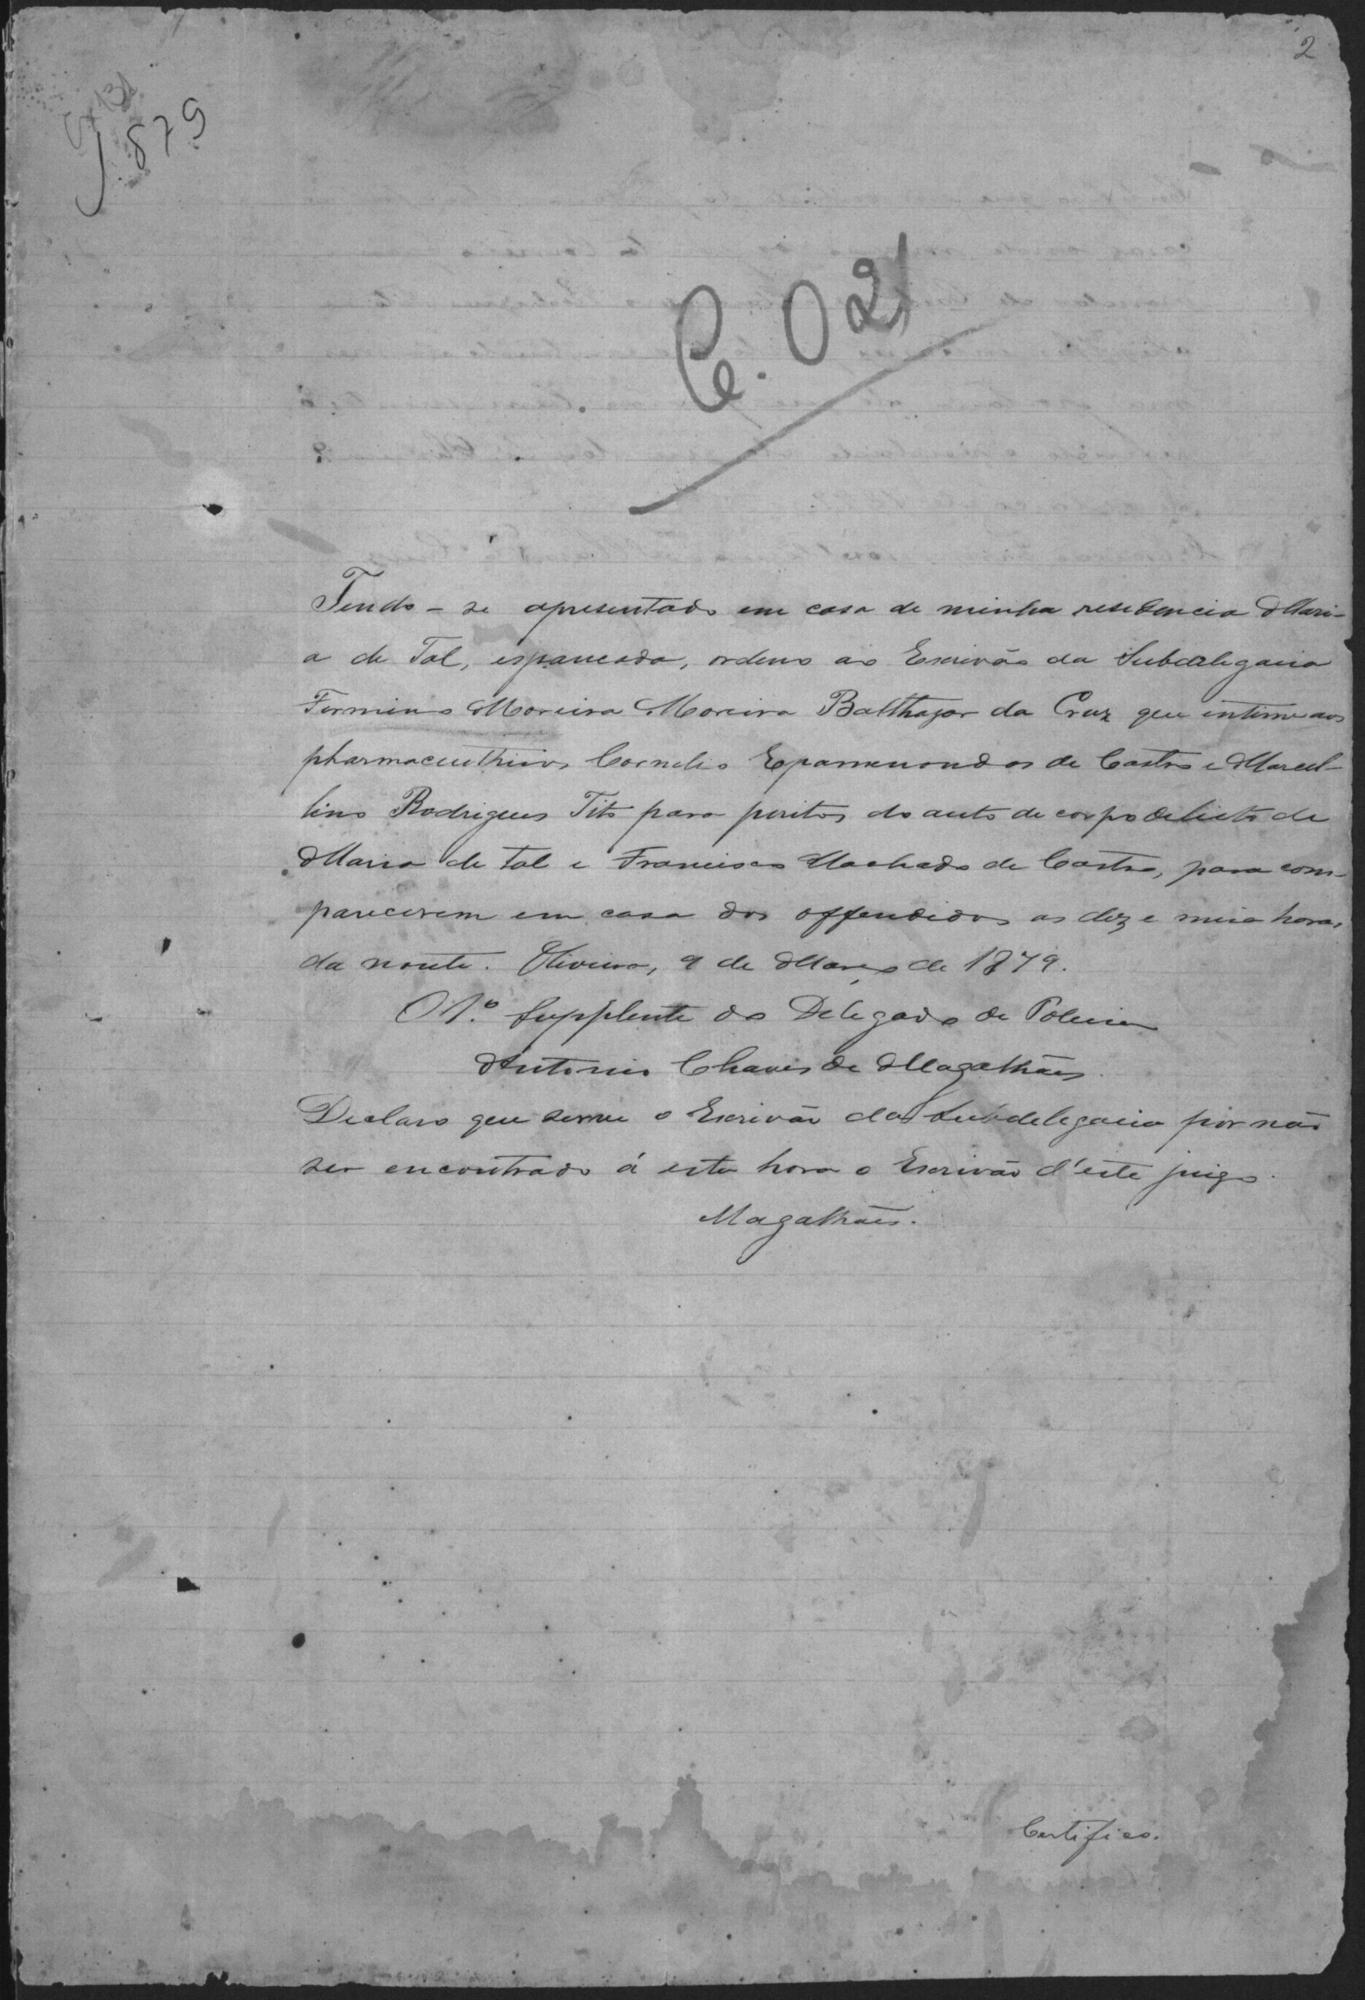 2
1879
C. 02
Tendo-se apresentado em casa de minha residencia Mari-
a de Tal, espancada, ordeno ao Escrivão da Subdelegacia
Firmino Moreira Moreira Balthazar da Cruz que intime aos
pharmaceuthicos Cornelio Epamenondas de Castro e Marcel-
lino Rodrigues Tito para peritos do auto de corpo delicto de
Maria de tal e Francisco Machado de Castro, para com-
parecerem em casa dos offendidos as dez e meia horas
da noute. Oliveira, 9 de Março de 1879.
O 1.º Supplente do Delegado de Policia
Antonio Chaves de Magalhães.
Declaro que serve o Escrivão da Subdelegacia por não
ser encontrado á esta hora o Escrivão d'este juizo.
Magalhães.
Certifico.